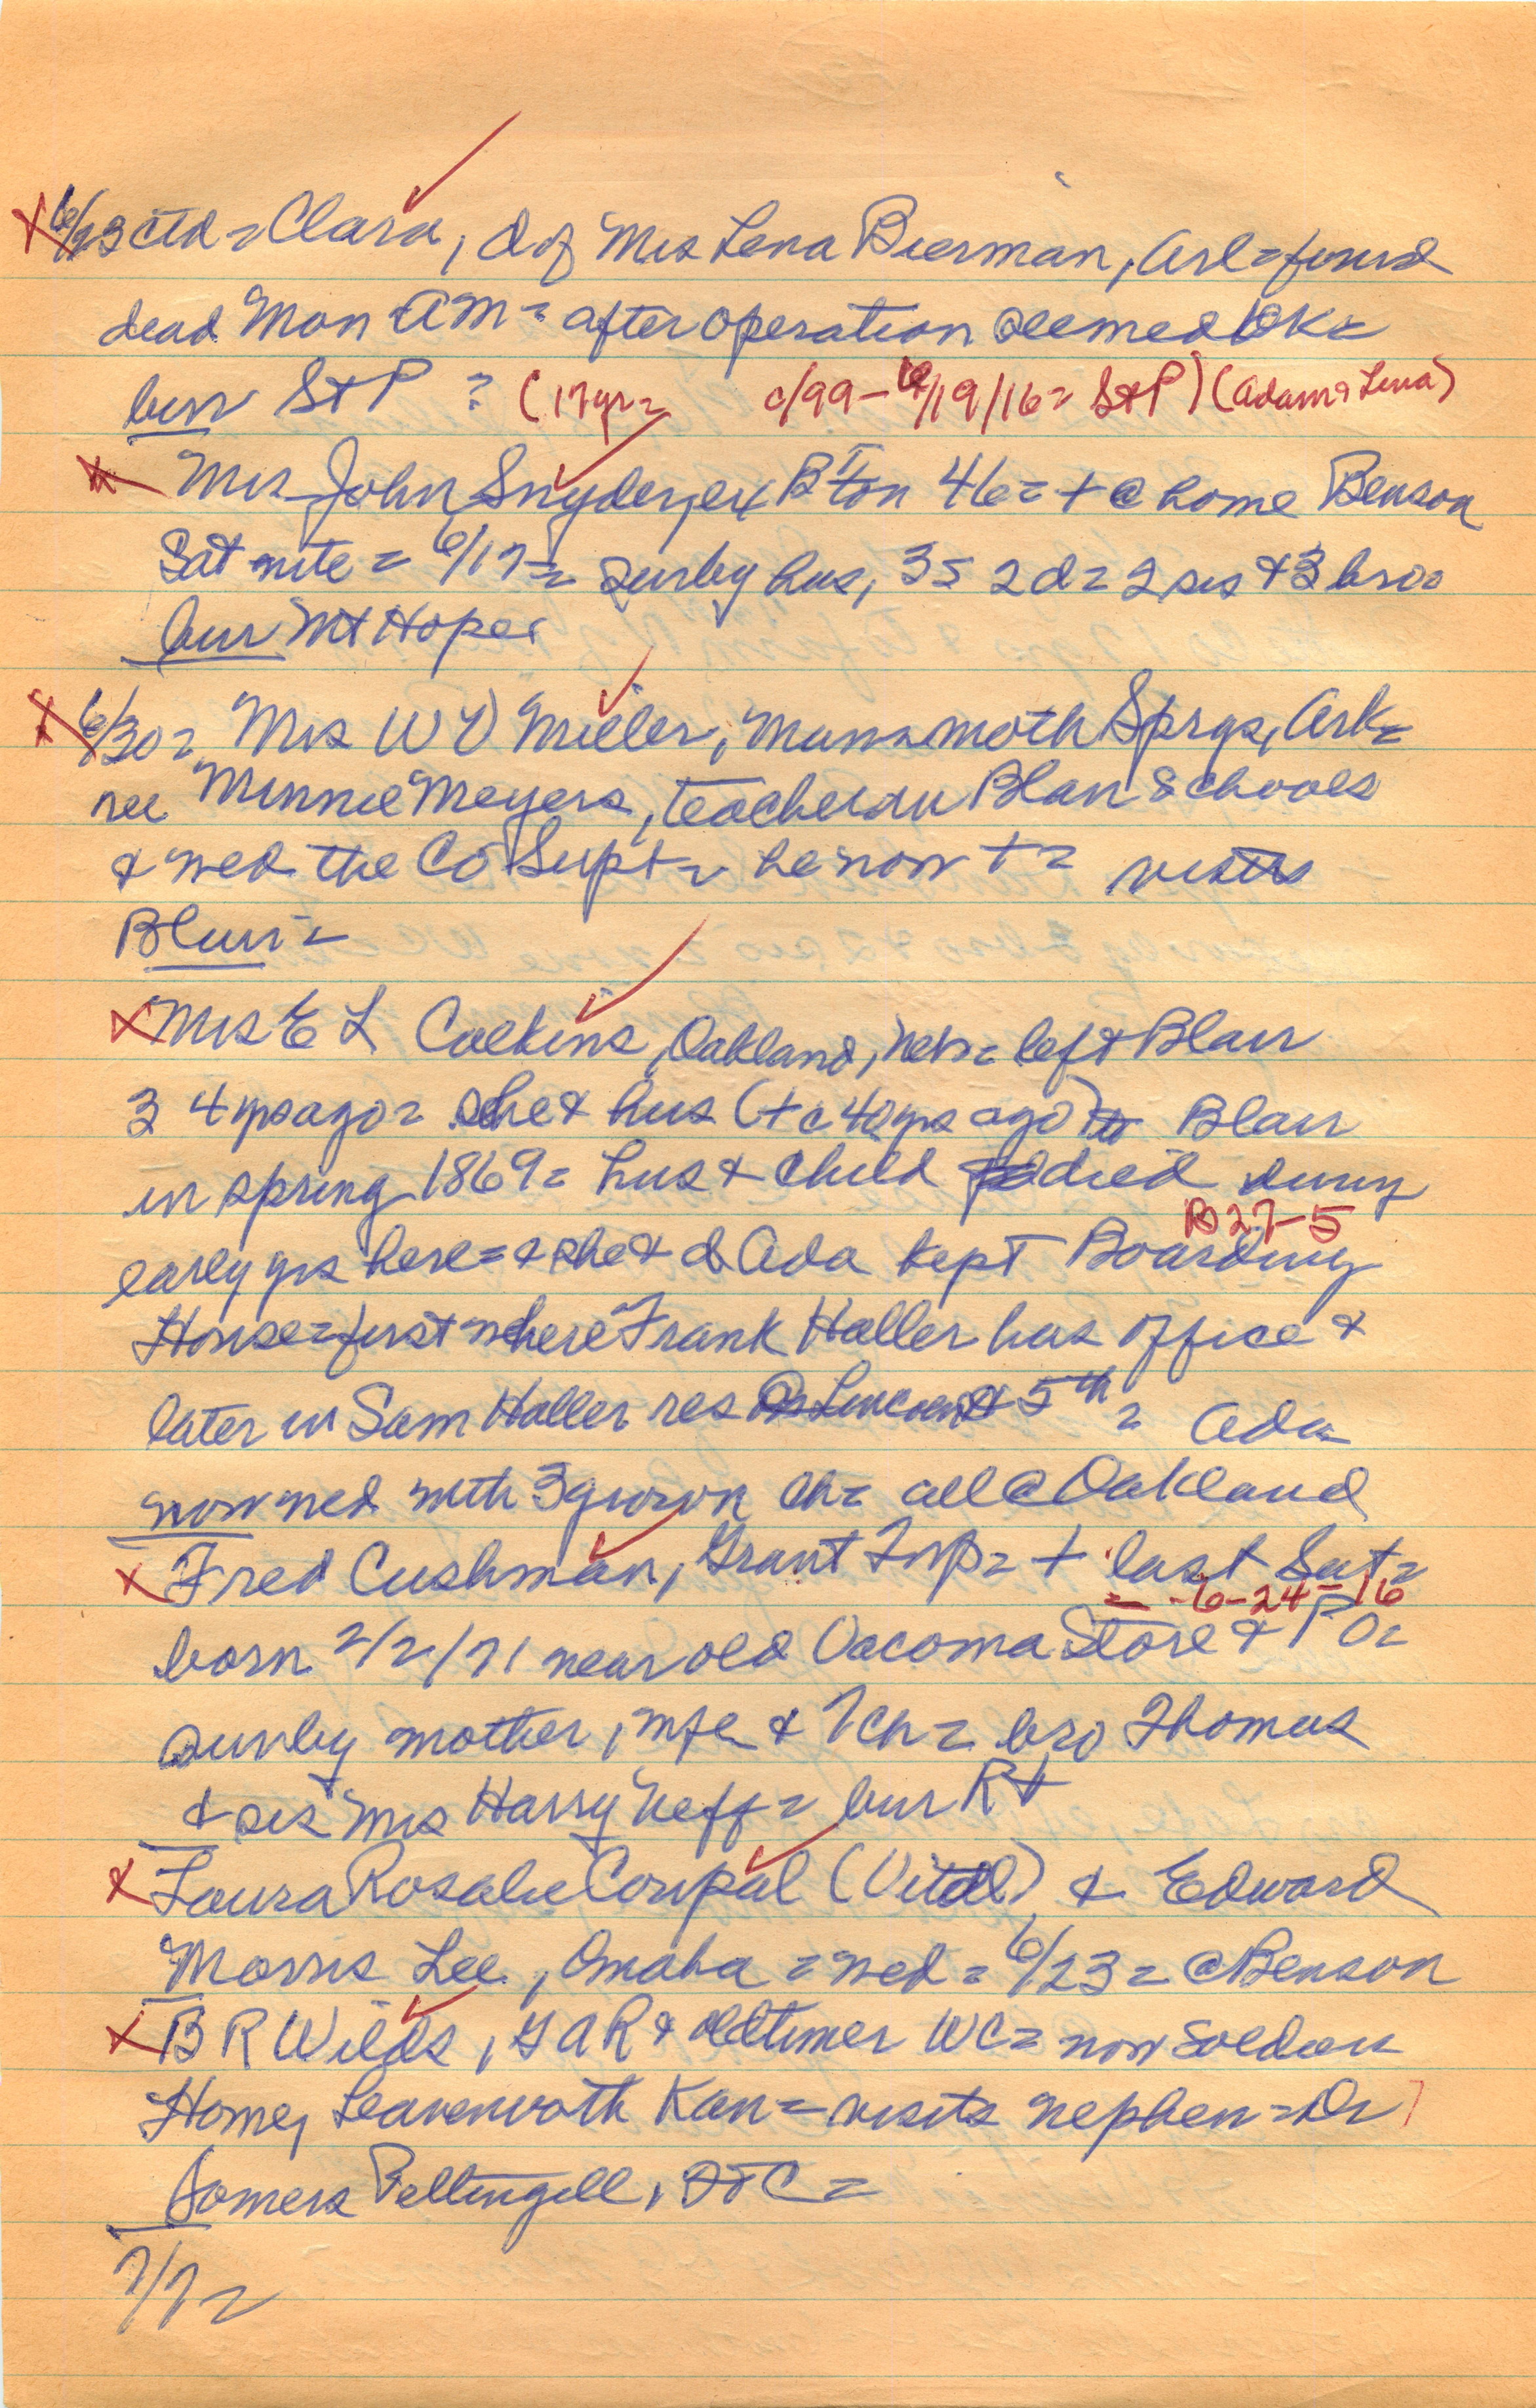 6/23 ctd = Clara, d of Mrs Lena Bierman, Arl = found
dead Mon AM = after operation seemed OK =
bur St P ? (17yr = c/99 - 6/19/16 = St P) (Adam & Lena)
Mrs John Snyder, ex B'ton 46 = + @ home Benson
Sat nite = 6/17 = survby hus, 3s 2d = 2 sis + 3 bro =
bur Mt Hope =
6/30 = Mrs W V Miller, Mammoth Sprgs, Ark =
nee Minnie Meyers, teacher in Blair Schools
& wed the Co Supt = he now + = visits
Blair =
Mrs E L Calkins, Oakland, Neb = left Blair
34 yrs ago = she & hus (+ c 40 yrs ago) to Blair
in spring 1869 = hus & child died during
early yrs here = & she & d Ada kept Boarding
B 27-5
House = first where Frank Haller has office &
later in Sam Haller res Lincoln & 5th = Ada
now wed with 3 grown ch = all @ Oakland
Fred Cushman, Grant Twp = + last Sat =
= -6-24-16
born 2/2/71 near old Vacoma Store & PO =
survby mother, wfe & 7 ch = bro Thomas
& sis Mrs Harry Neff = bur R+
Laura Rosalie Coupal (Vital) & Edward
Morris Lee, Omaha = wed = 6/23 = @ Benson
B R Wilds, GAR & oldtimer WC = now Soldiers
Home, Leavenworth Kan = visits nephew = Dr
Somers Pettingill, DTC =
7/7 =